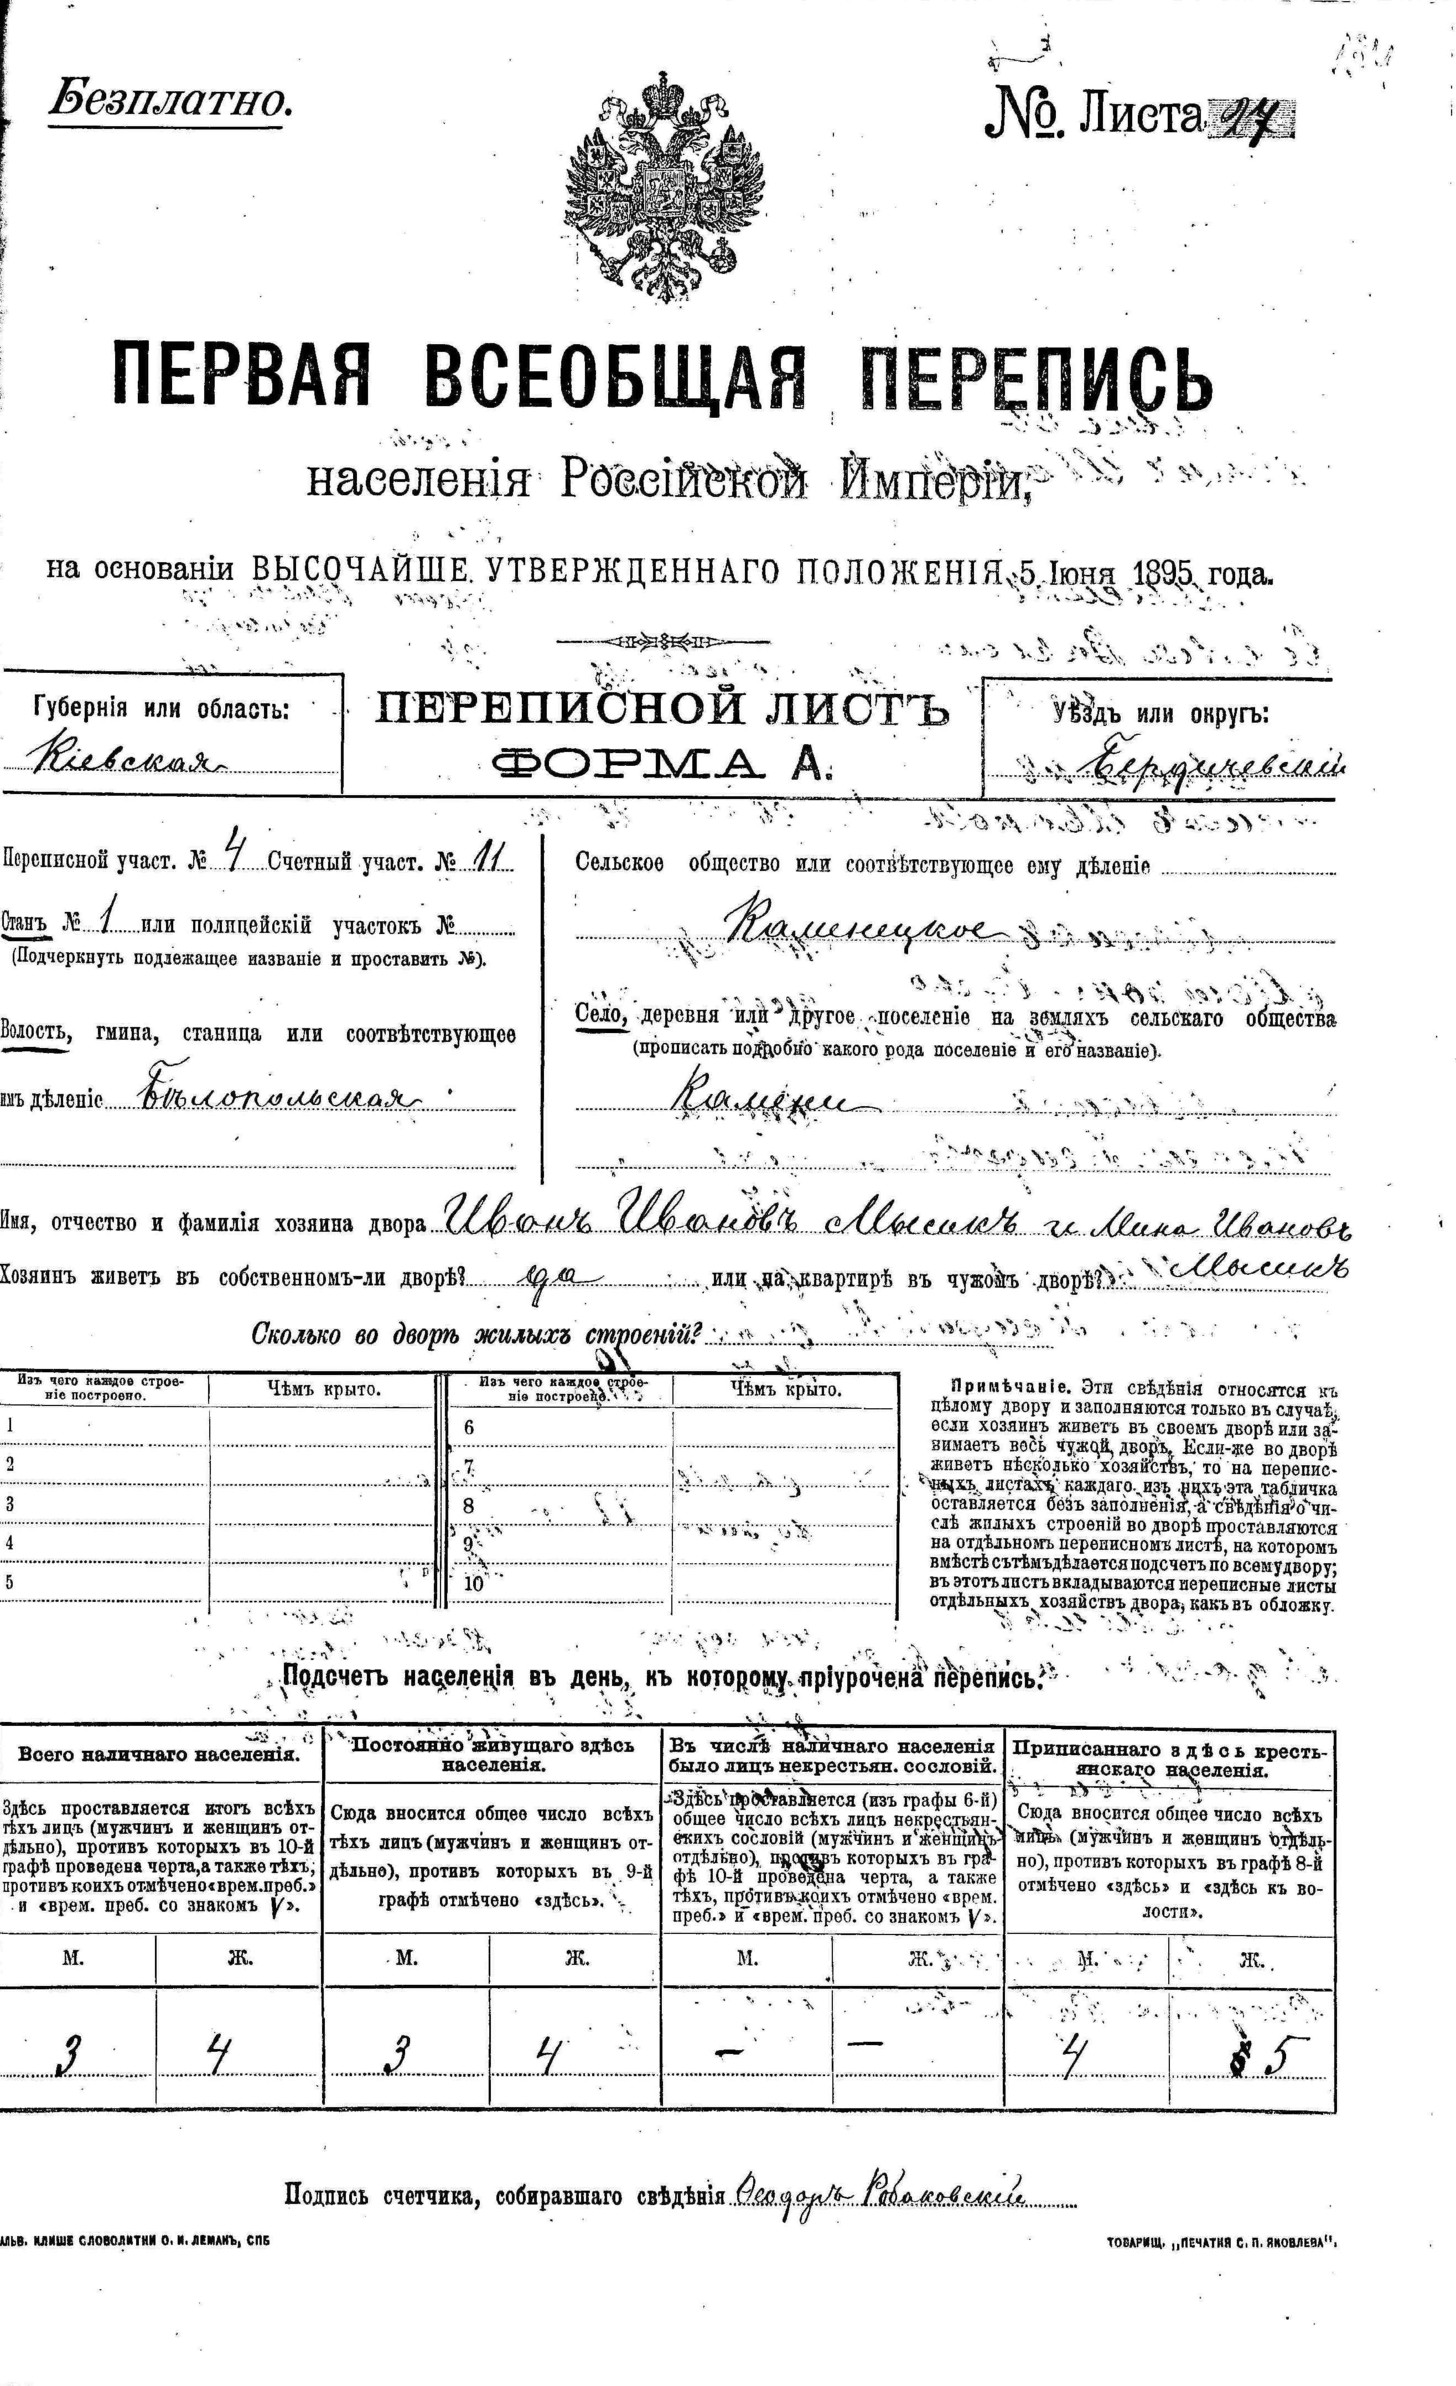 Безплатно.
№. Листа 27
ПЕРВАЯ ВСЕОБЩАЯ ПЕРЕПИСЬ
населенія Россійской Имперіи,
на основаніи ВЫСОЧАЙШЕ УТВЕРЖДЕННАГО ПОЛОЖЕНІЯ 5 Іюня 1895 года.
Губернія или область:
Кіевская
ПЕРЕПИСНОЙ ЛИСТЪ
ФОРМА А.
Уѣздъ или округъ:
Бердичевскій
Переписной участ. № 4 Счетный участ. № 11
Станъ № 1 или полицейскій участокъ №
(Подчеркнуть подлежащее названіе и проставить №).
Волость, гмина, станица или соотвѣтствующее
имъ дѣленіе Бѣлопольская
Сельское общество или соотвѣтствующее ему дѣленіе
Каменецкое
Село, деревня или другое поселеніе на земляхъ сельскаго общества
(прописать подробно какого рода поселеніе и его названіе).
Камени
Имя, отчество и фамилія хозяина двора Иванъ Ивановъ Мысикъ и Мина Ивановъ
Мысикъ
Хозяинъ живетъ въ собственномъ-ли дворѣ? да или на квартирѣ въ чужомъ дворѣ?
Сколько во дворѣ жилыхъ строеній?
Изъ чего каждое строе-
ніе построено.
Чѣмъ крыто.
Изъ чего каждое строе-
ніе построено.
Чѣмъ крыто.
1
6
2
7
3
8
4
9
5
10
Примѣчаніе. Эти свѣдѣнія относятся къ
цѣлому двору и заполняются только въ случаѣ,
если хозяинъ живетъ въ своемъ дворѣ или за-
нимаетъ весь чужой дворъ. Если-же во дворѣ
живетъ нѣсколько хозяйствъ, то на перепис-
ныхъ листахъ каждаго изъ нихъ эта табличка
оставляется безъ заполненія, а свѣдѣнія о чи-
слѣ жилыхъ строеній во дворѣ проставляются
на отдѣльномъ переписномъ листѣ, на которомъ
вмѣстѣ съ тѣмъ дѣлается подсчетъ по всему двору;
въ этотъ листъ вкладываются переписные листы
отдѣльныхъ хозяйствъ двора, какъ въ обложку.
Подсчетъ населенія въ день, къ которому пріурочена перепись.
Всего наличнаго населенія.
Здѣсь проставляется итогъ всѣхъ
тѣхъ лицъ (мужчинъ и женщинъ от-
дѣльно), противъ которыхъ въ 10-й
графѣ проведена черта, а также тѣхъ,
противъ коихъ отмѣчено «врем. преб.»
и «врем. преб. со знакомъ V».
Постоянно живущаго здѣсь
населенія.
Сюда вносится общее число всѣхъ
тѣхъ лицъ (мужчинъ и женщинъ от-
дѣльно), противъ которыхъ въ 9-й
графѣ отмѣчено «здѣсь».
Въ числѣ наличнаго населенія
было лицъ некрестьян. сословій.
Здѣсь проставляется (изъ графы 6-й)
общее число всѣхъ лицъ некрестьян-
скихъ сословій (мужчинъ и женщинъ
отдѣльно), противъ которыхъ въ гра-
фѣ 10-й проведена черта, а также
тѣхъ, противъ коихъ отмѣчено «врем.
преб.» и «врем. преб. со знакомъ V».
Приписаннаго здѣсь кресть-
янскаго населенія.
Сюда вносится общее число всѣхъ
лицъ (мужчинъ и женщинъ отдѣль-
но), противъ которыхъ въ графѣ 8-й
отмѣчено «здѣсь» и «здѣсь къ во-
лости».
М. Ж. М. Ж. М. Ж. М. Ж.
3 4 3 4 – – 4 5
Подпись счетчика, собиравшаго свѣдѣнія Ѳеодоръ Робаковскій
АЛЬВ. КЛИШЕ СЛОВОЛИТНИ О. И. ЛЕМАНЪ, СПБ
ТОВАРИЩ. „ПЕЧАТНЯ С. П. ЯКОВЛЕВА".